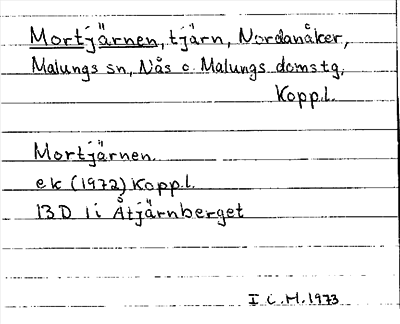 Mortjärnen, tjärn, Nordanåker,
Malungs sn, Nås o. Malungs domstg,
Kopp.l.
Mortjärnen
ek (1972) Kopp.l.
13D 1i Åtjärnberget
I C.M. 1973